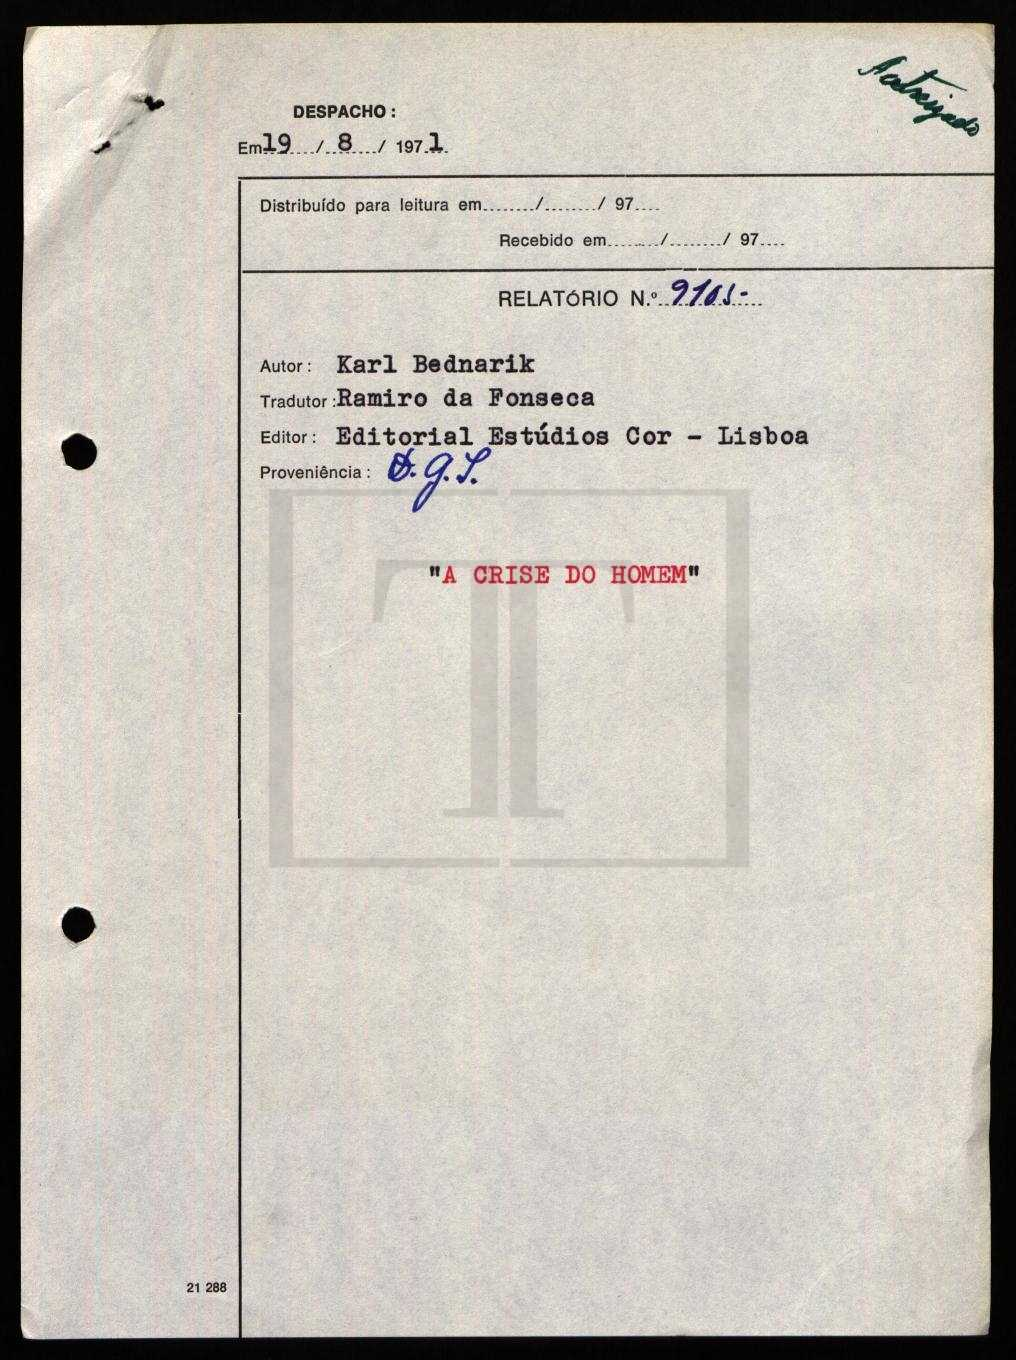 Autorizado
DESPACHO :
Em 19 / 8 / 1971
Distribuído para leitura em......../......../ 97....
Recebido em......../......../ 97....
RELATÓRIO N.º 9105-
Autor : Karl Bednarik
Tradutor : Ramiro da Fonseca
Editor : Editorial Estúdios Cor - Lisboa
Proveniência : D.G.S.
"A CRISE DO HOMEM"
21 288